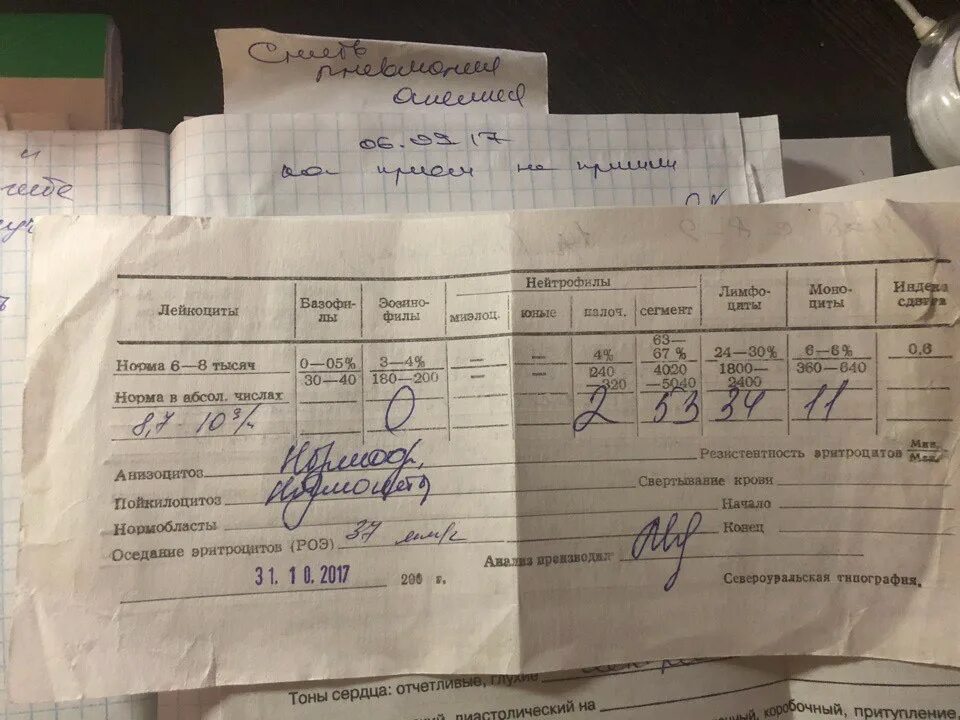 пневмония
06.09.17
на прием не пришли
Лейкоциты
Базофи-
лы
Эозино-
филы
Нейтрофилы
миэлоц.
юные
палоч.
сегмент
Лимфо-
циты
Моно-
циты
Индекс
сдвига
Норма 6—8 тысяч
0—05%
3—4%
—
—
4%
63—
67 %
24—30%
6—8%
0,6
Норма в абсол. числах
30—40
180—200
—
—
240
—320
4020
—5040
1800—
2400
360—640
8,7 · 10⁹/л
0
2
53
34
11
Анизоцитоз
Нормохр.
Резистентность эритроцитов Мин.
Мак.
Пойкилоцитоз
Нормоциты
Свертывание крови
Нормобласты
Начало
Оседание эритроцитов (РОЭ) 37 мм/ч
Конец
Анализ производил
31. 10. 2017
200 г.
Североуральская типография.
Тоны сердца: отчетливые, глухие
диастолический на
коробочный, притупление